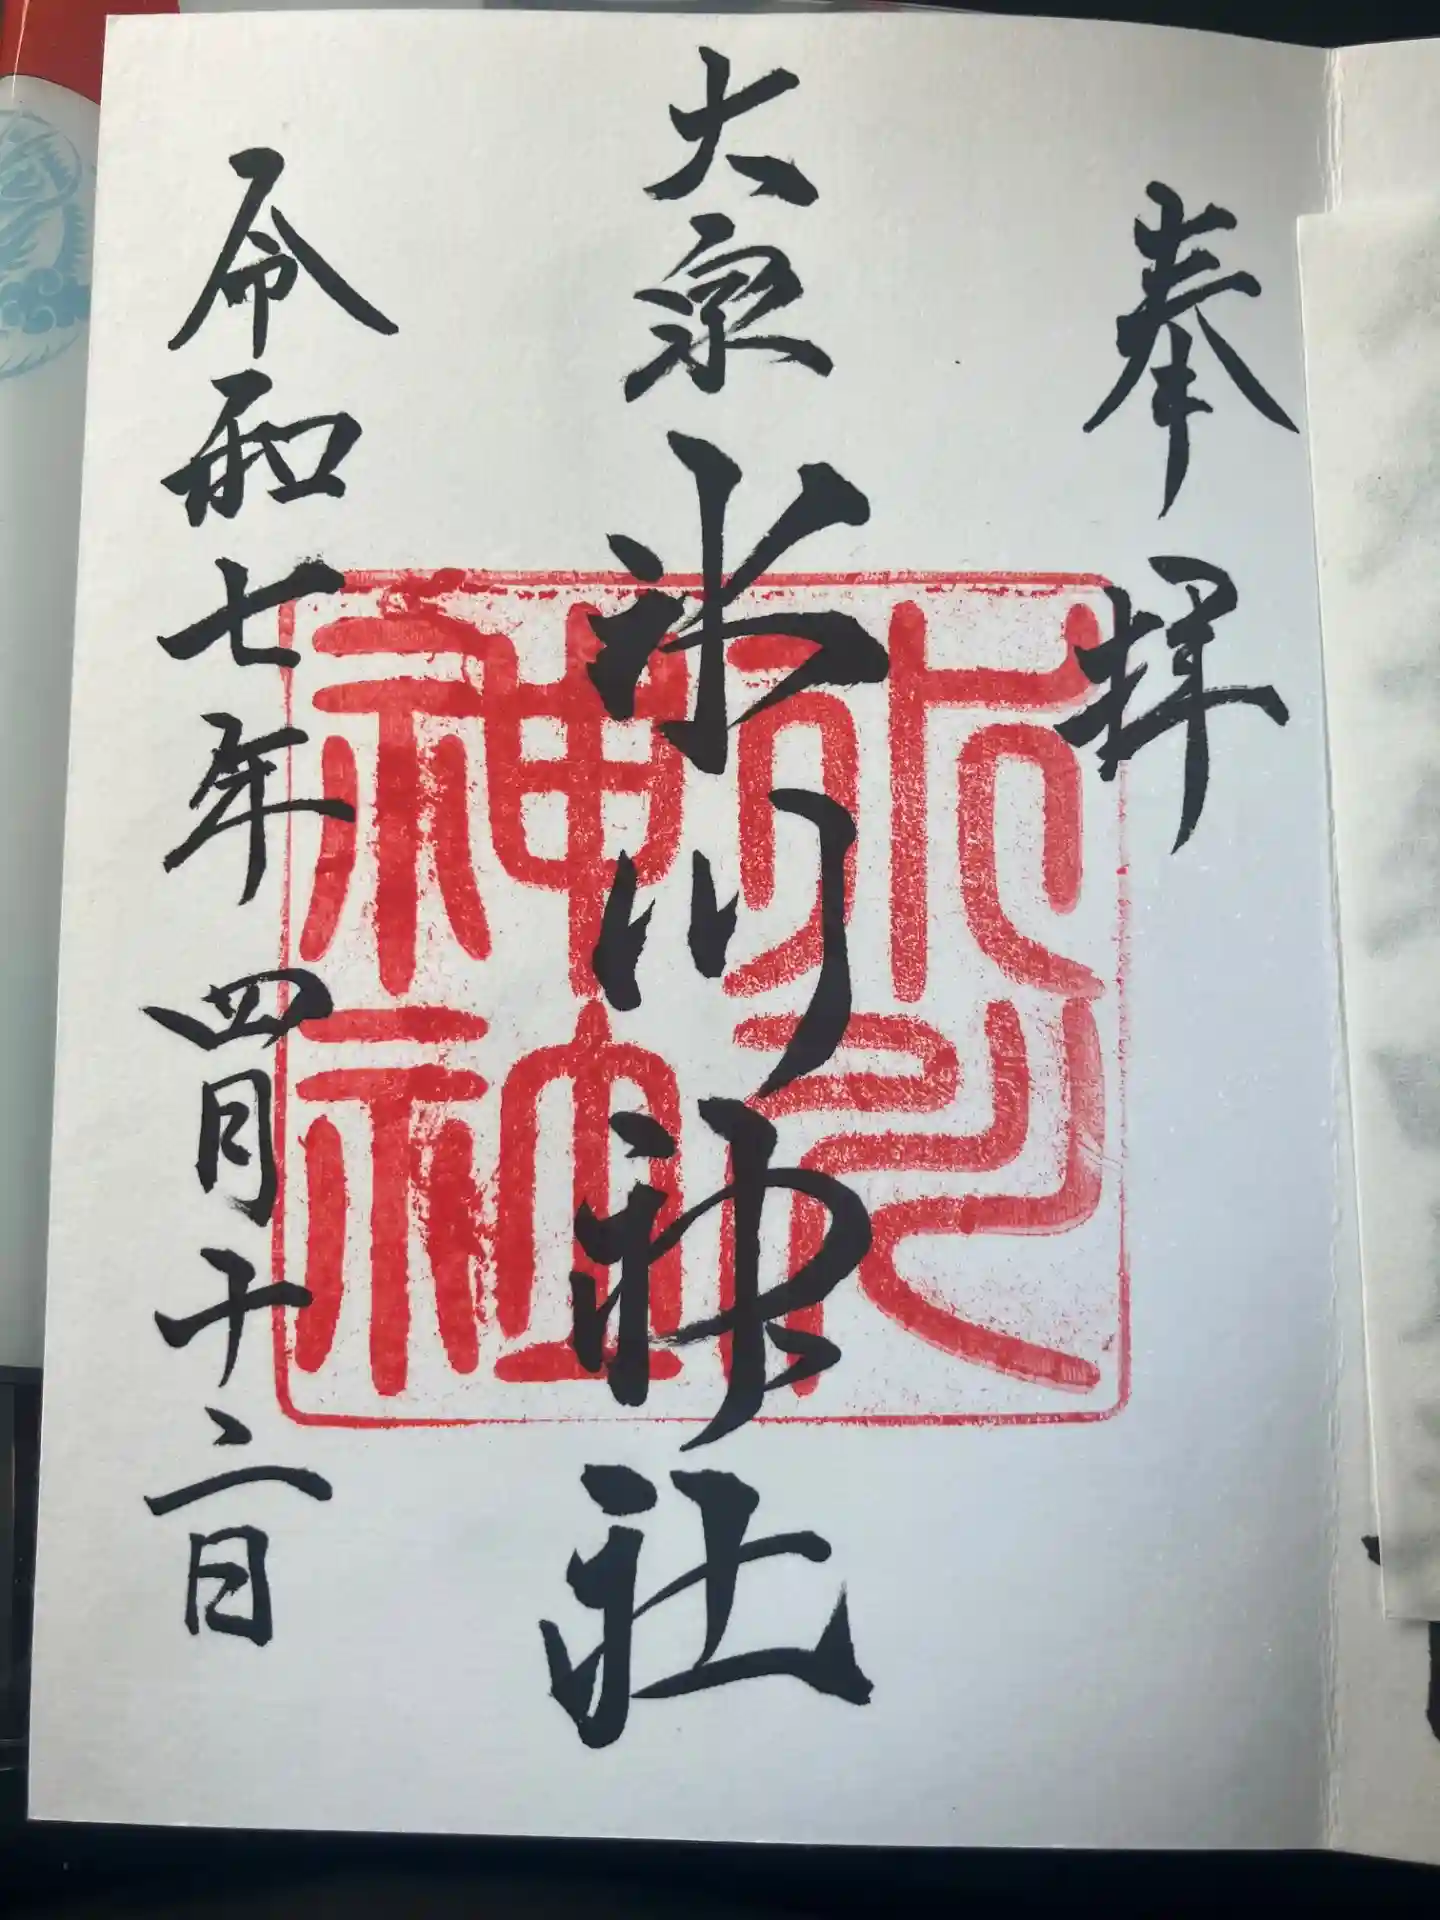 奉拝
大泉氷川神社
令和七年四月十二日
氷川
神社